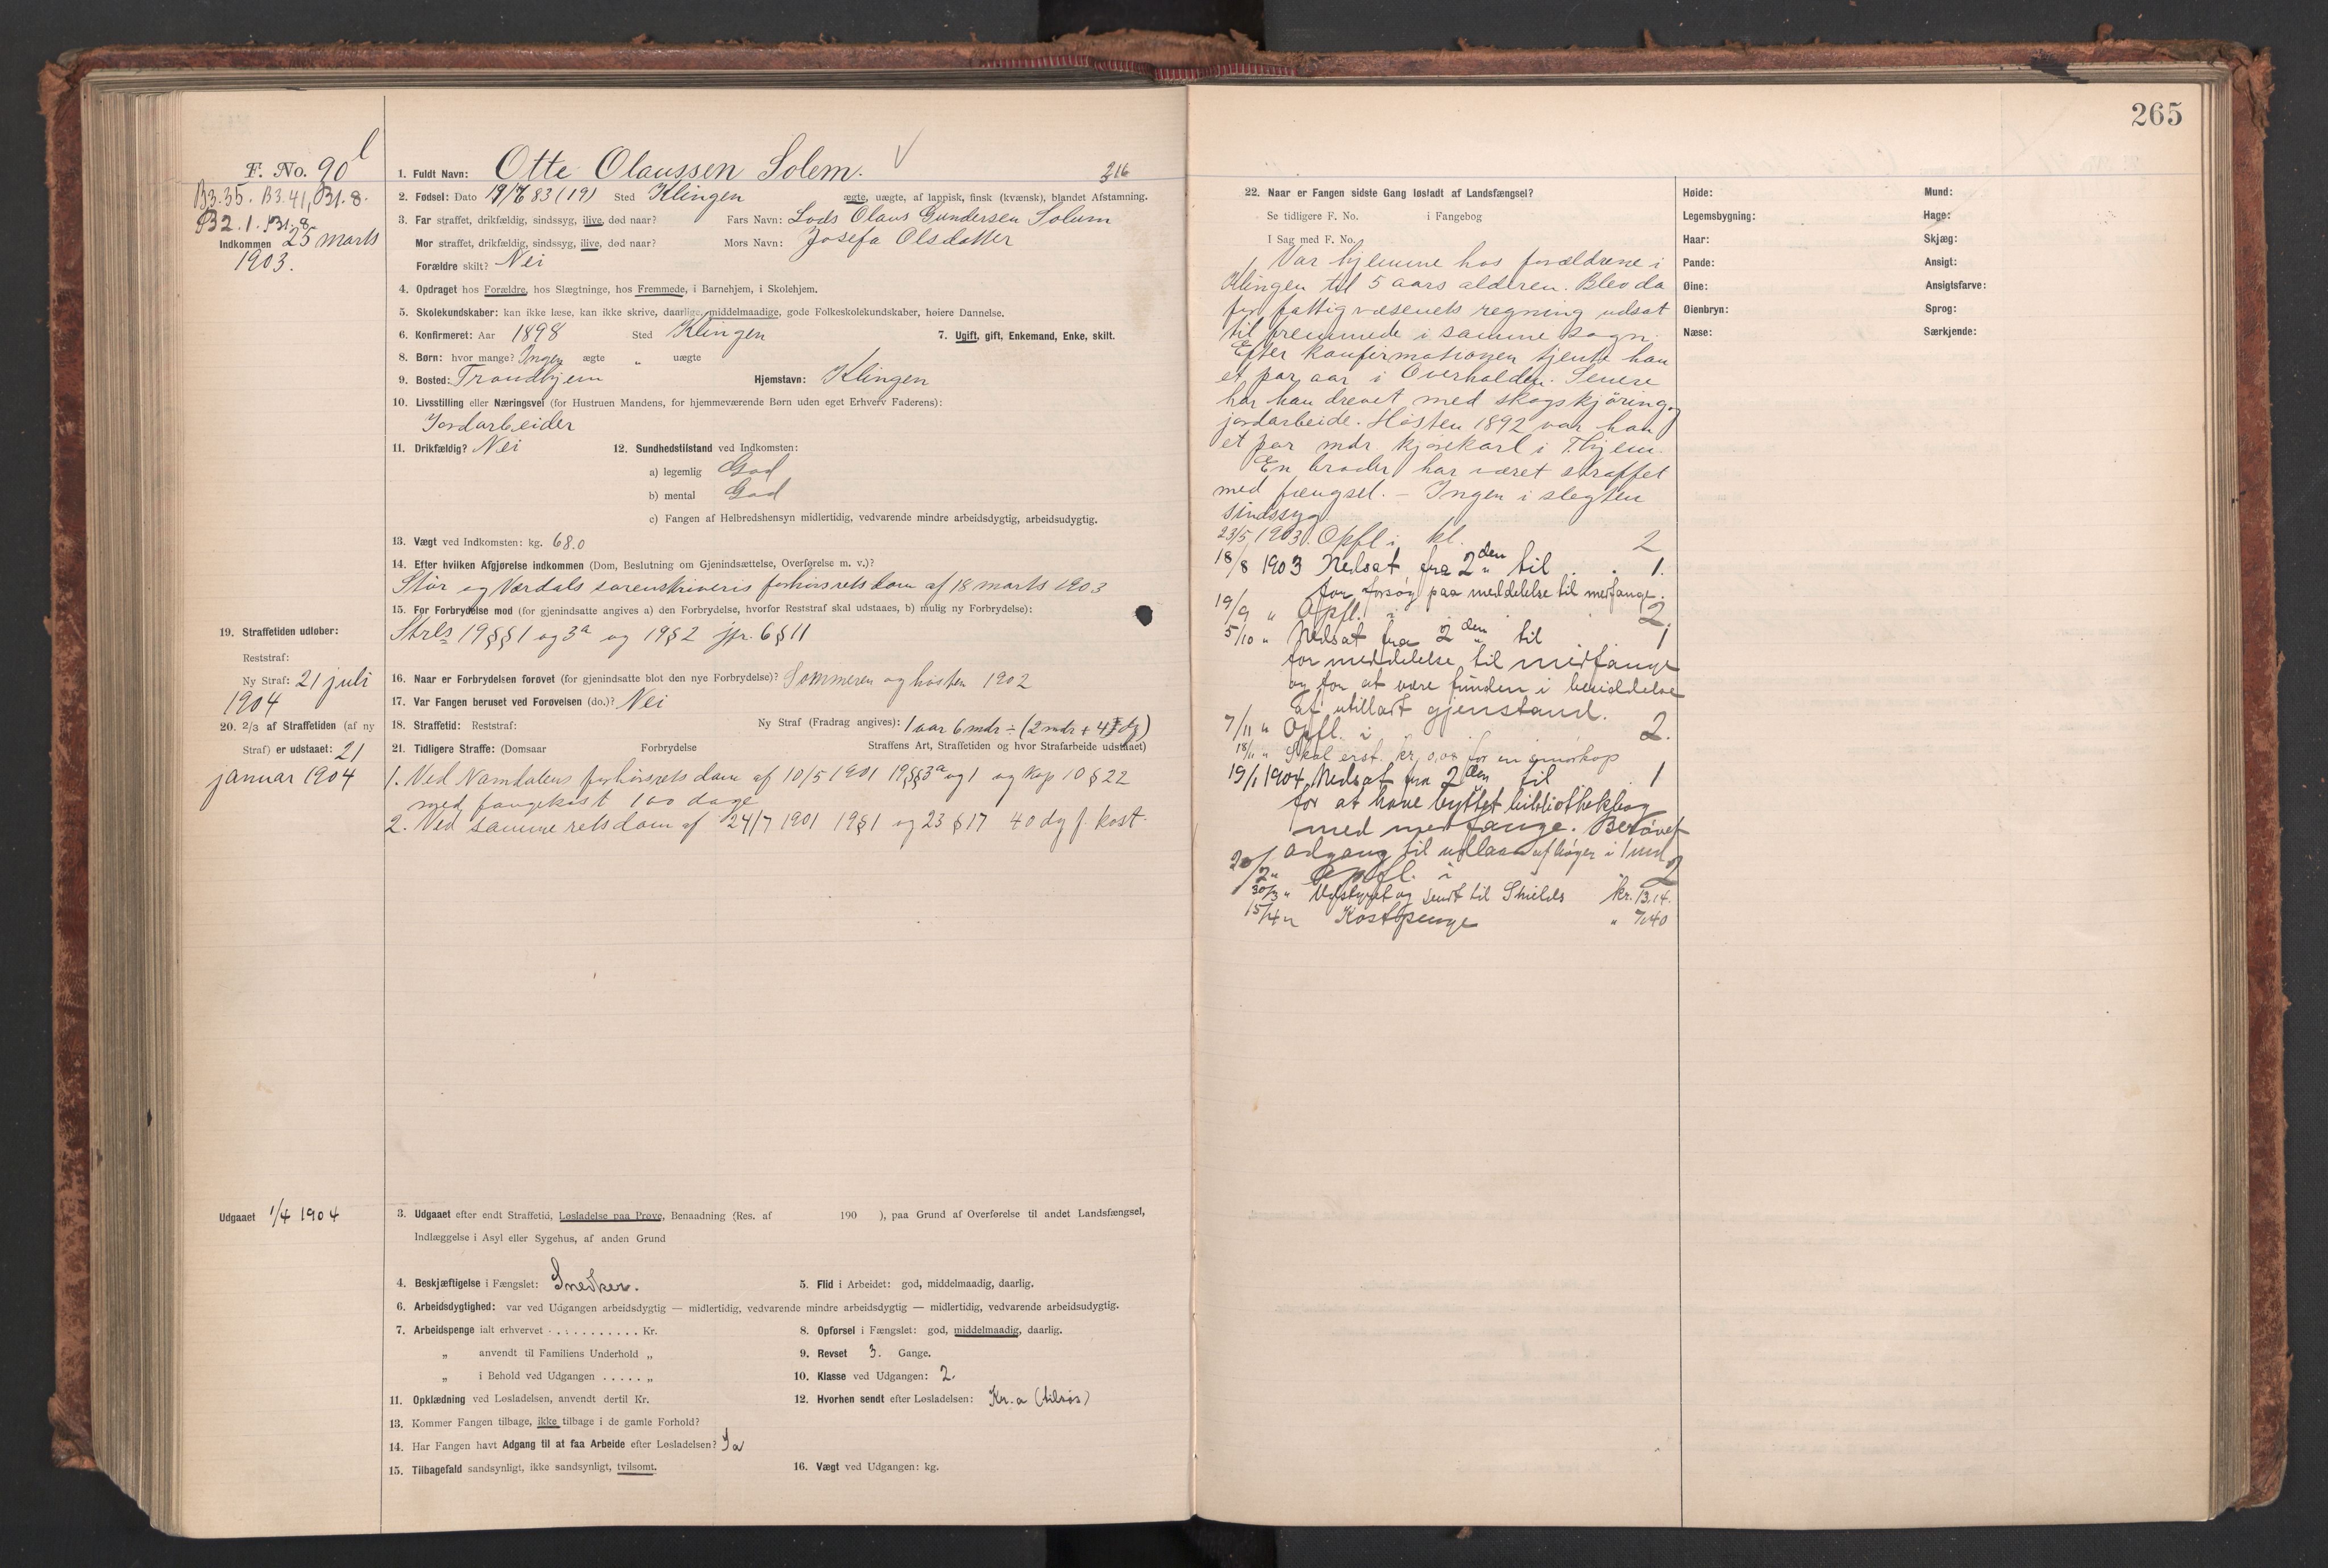 265
F. No. 90 l
B3.35. B3.41, B1.8.
B2.1. B1.8
Indkommen 25 marts
1903.
1. Fuldt Navn: Otte Olaussen Solem. 316
2. Fødsel: Dato 19/7 83 (19) Sted Klingen ægte, uægte, af lappisk, finsk (kvænsk), blandet Afstamning.
3. Far straffet, drikfældig, sindssyg, ilive, død naar? Fars Navn: Lods Olaus Gundersen Solum
Mor straffet, drikfældig, sindssyg, ilive, død naar? Mors Navn: Josefa Olsdatter
Forældre skilt? Nei
4. Opdraget hos Forældre, hos Slægtninge, hos Fremmede, i Barnehjem, i Skolehjem.
5. Skolekundskaber: kan ikke læse, kan ikke skrive, daarlige, middelmaadige, gode Folkeskolekundskaber, høiere Dannelse.
6. Konfirmeret: Aar 1898 Sted Klingen 7. Ugift, gift, Enkemand, Enke, skilt.
8. Børn: hvor mange? Ingen ægte „ uægte
9. Bosted: Trondhjem Hjemstavn: Klingen
10. Livsstilling eller Næringsvei (for Hustruen Mandens, for hjemmeværende Børn uden eget Erhverv Faderens):
Jordarbeider
11. Drikfældig? Nei 12. Sundhedstilstand ved Indkomsten:
a) legemlig God
b) mental God
c) Fangen af Helbredshensyn midlertidig, vedvarende mindre arbeidsdygtig, arbeidsudygtig.
13. Vægt ved Indkomsten: kg. 68.0
14. Efter hvilken Afgjørelse indkommen (Dom, Beslutning om Gjenindsættelse, Overførelse m. v.)?
Stør og Værdals sorenskriveris forhørsrets dom af 18 marts 1903
15. For Forbrydelse mod (for gjenindsatte angives a) den Forbrydelse, hvorfor Reststraf skal udstaaes, b) mulig ny Forbrydelse):
Strls 19 §§ 1 og 3a og 19 § 2 jfr. 6 § 11
19. Straffetiden udløber:
Reststraf:
Ny Straf: 21 juli
1904
16. Naar er Forbrydelsen forøvet (for gjenindsatte blot den nye Forbrydelse)? Sommeren og høsten 1902
17. Var Fangen beruset ved Forøvelsen (do.)? Nei
20. 2/3 af Straffetiden (af ny
Straf) er udstaaet: 21
januar 1904
18. Straffetid: Reststraf: Ny Straf (Fradrag angives): 1 aar 6 mdr ÷ (2 mdr + 4 dg)
21. Tidligere Straffe: (Domsaar Forbrydelse Straffens Art, Straffetiden og hvor Strafarbeide udstaaet)
1. Ved Namdalens forhørsrets dom af 10/5 1901 19 §§ 3a og 1 og Kap 10 § 22
med fangekost 100 dage
2. Ved samme rets dom af 24/7 1901 19 § 1 og 23 § 17 40 dg f. kost.
Udgaaet 1/4 1904
3. Udgaaet efter endt Straffetid, Løsladelse paa Prøve, Benaadning (Res. af 190 ), paa Grund af Overførelse til andet Landsfængsel,
Indlæggelse i Asyl eller Sygehus, af anden Grund
4. Beskjæftigelse i Fængslet: Snedker. 5. Flid i Arbeidet: god, middelmaadig, daarlig.
6. Arbeidsdygtighed: var ved Udgangen arbeidsdygtig — midlertidig, vedvarende mindre arbeidsdygtig — midlertidig, vedvarende arbeidsudygtig.
7. Arbeidspenge ialt erhvervet . . . . . . . . . . . Kr. 8. Opførsel i Fængslet: god, middelmaadig, daarlig.
„ anvendt til Familiens Underhold „ 9. Revset 3. Gange.
„ i Behold ved Udgangen . . . . . „ 10. Klasse ved Udgangen: 2.
11. Opklædning ved Løsladelsen, anvendt dertil Kr. 12. Hvorhen sendt efter Løsladelsen: Kr.a (tilsøs)
13. Kommer Fangen tilbage, ikke tilbage i de gamle Forhold?
14. Har Fangen havt Adgang til at faa Arbeide efter Løsladelsen? Ja
15. Tilbagefald sandsynligt, ikke sandsynligt, tvilsomt. 16. Vægt ved Udgangen: kg.
22. Naar er Fangen sidste Gang løsladt af Landsfængsel?
Se tidligere F. No. i Fangebog
I Sag med F. No.
Var hjemme hos forældrene i
Klingen til 5 aars alderen. Blev da
for fattigvæsenets regning udsat
til fremmede i samme sogn.
Efter konfirmationen tjente han
et par aar i Overhalden. Senere
har han drevet med skogskjøring og
jordarbeide. Høsten 1892 var han
et par mdr kjørekarl i T.hjem.
En broder har været straffet
med fængsel. – Ingen i slegten
sindssyg.
23/5 1903. Opfl i kl. 2
18/8 1903 Nedsat fra 2den til . . 1.
for forsøg paa meddelelse til medfange.
19/9 „ Opfl. i . . 2.
5/10 „ Nedsat fra 2den til 1
for meddelelse til medfange
og for at være funden i besiddelse
af utilladt gjenstand.
7/11 „ Opfl. i 2.
18/11 „ Skal erst. kr. 0,08 for en smørkop
19/1 1904 Nedsat fra 2den til 1
for at have byttet bibliothekbog
med medfange. Berøvet
adgang til udlaan af bøger i 1 md
20/2 „ Opfl. i 2
30/3 „ Udstyret og sendt til Shields kr. 13,14.
15/4 „ Kostpenge „ 7,40
Høide: Mund:
Legemsbygning: Hage:
Haar: Skjæg:
Pande: Ansigt:
Øine: Ansigtsfarve:
Øienbryn: Sprog:
Næse: Særkjende: